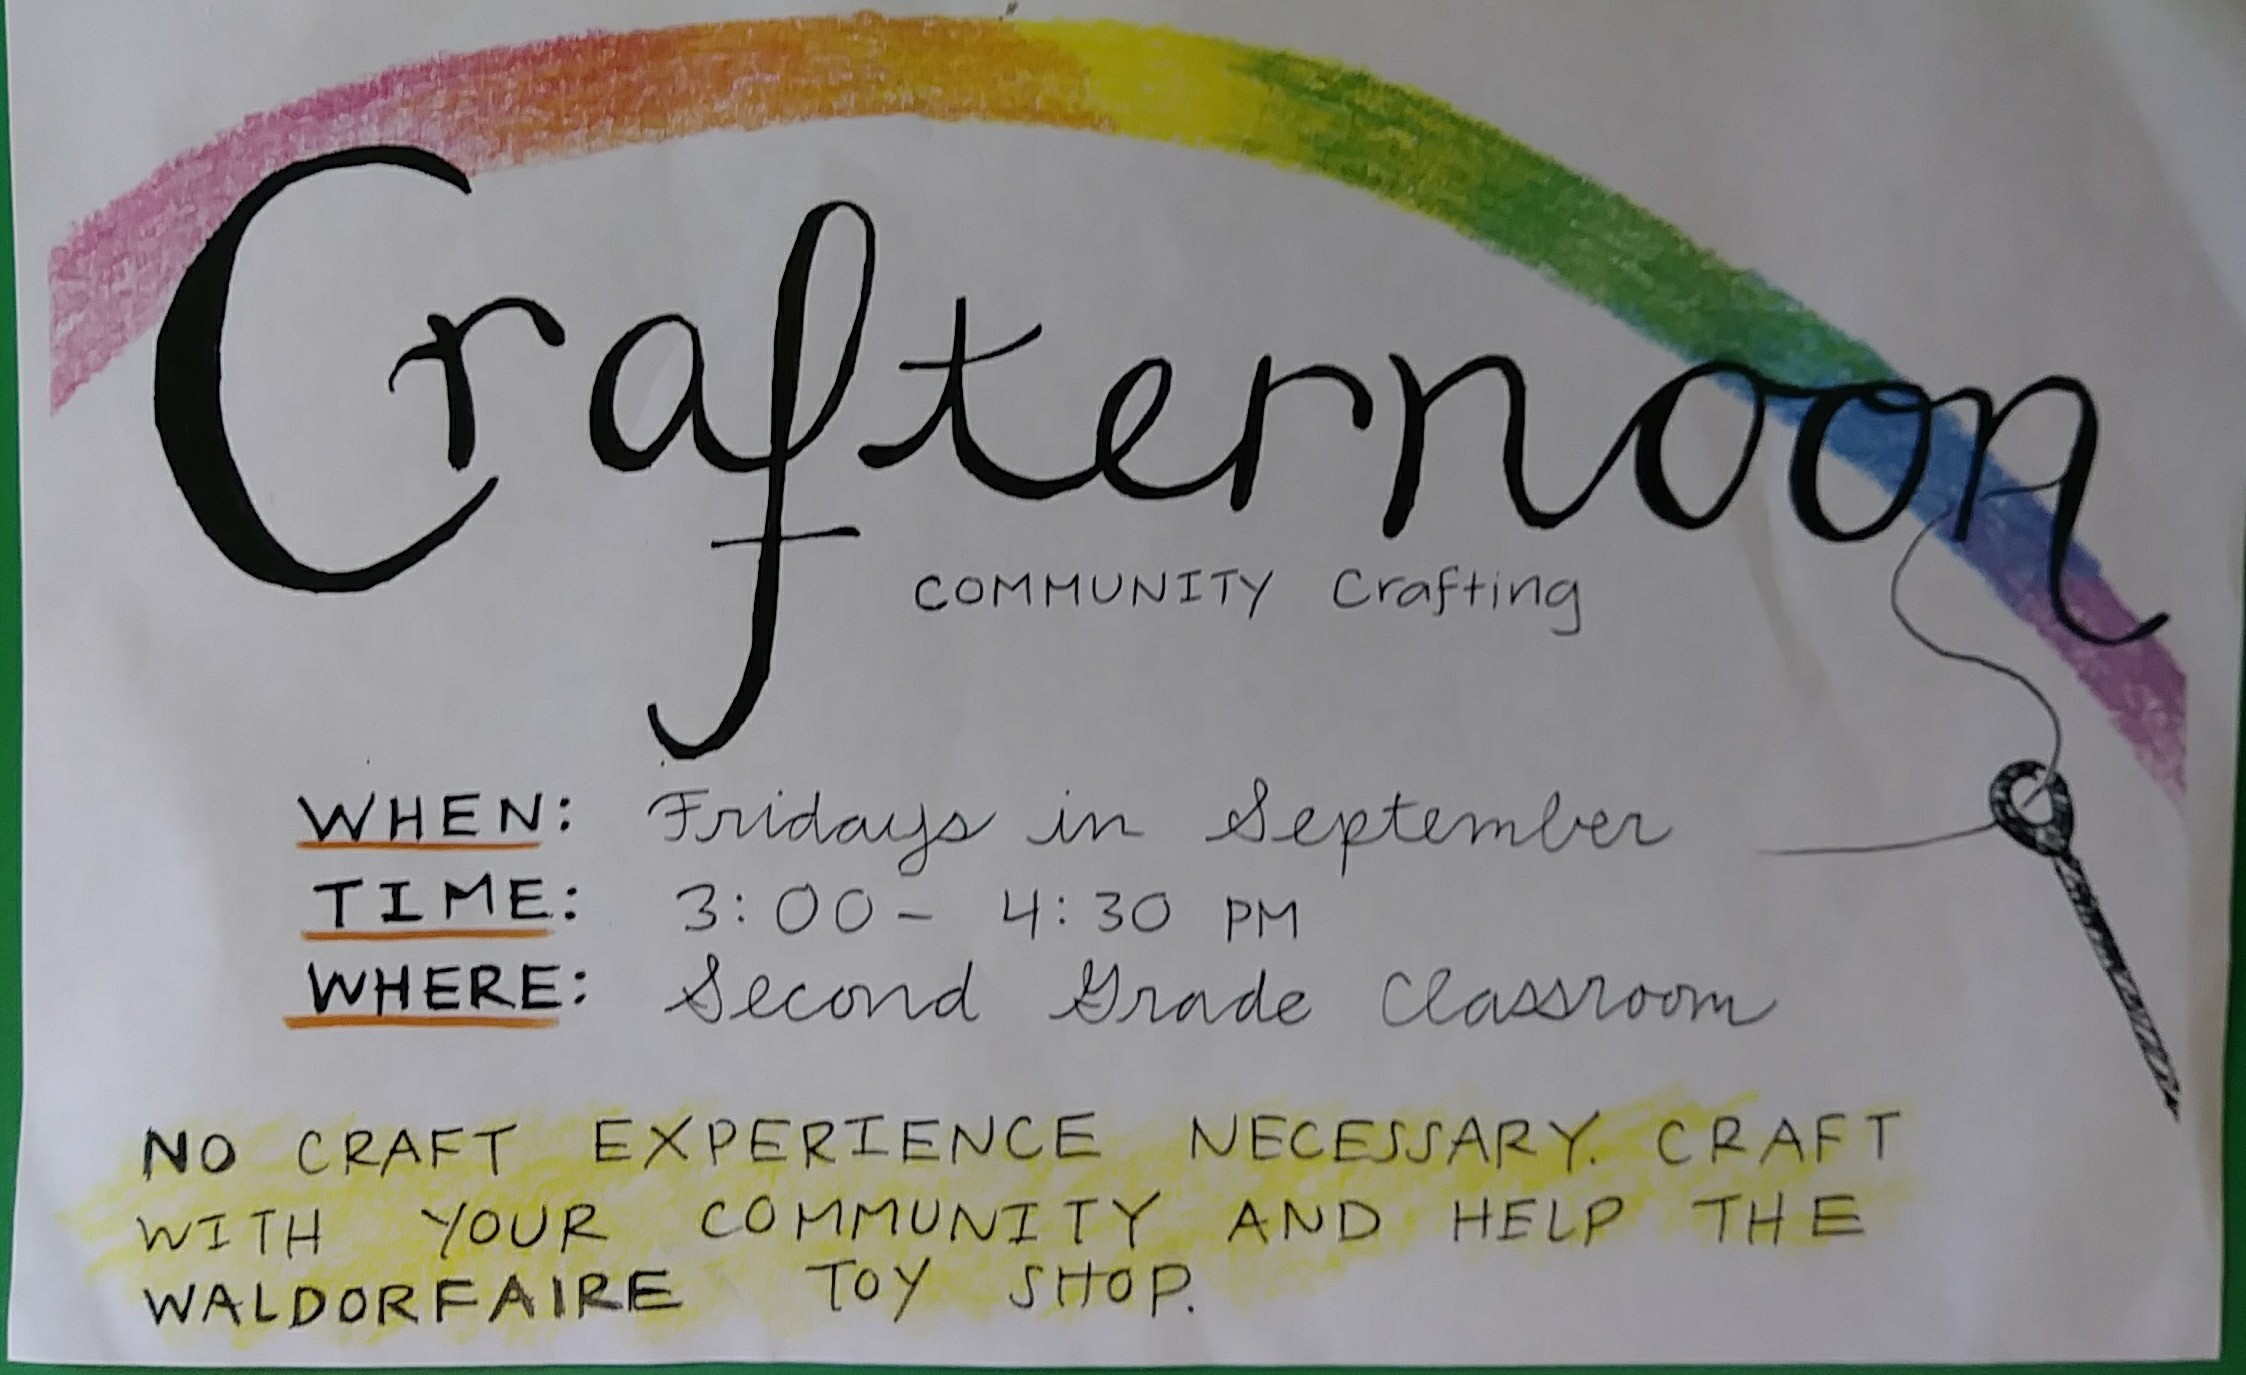 Crafternoon
COMMUNITY Crafting
WHEN: Fridays in September
TIME: 3:00- 4:30 PM
WHERE: Second Grade Classroom
NO CRAFT EXPERIENCE NECESSARY. CRAFT
WITH YOUR COMMUNITY AND HELP THE
WALDORFAIRE TOY SHOP.